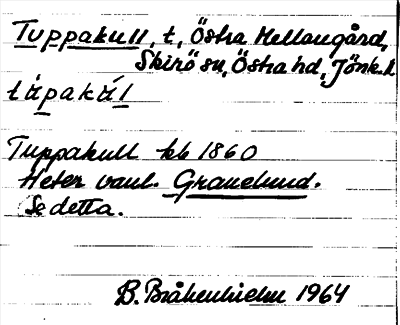 Tuppakull, t, Östra Mellangård,
Skirö sn, Östra hd, Jönk. l.
tùpakúl
Tuppakull kb 1860
Heter vanl. Granelund.
Se detta.
B. Bråkenhielm 1964